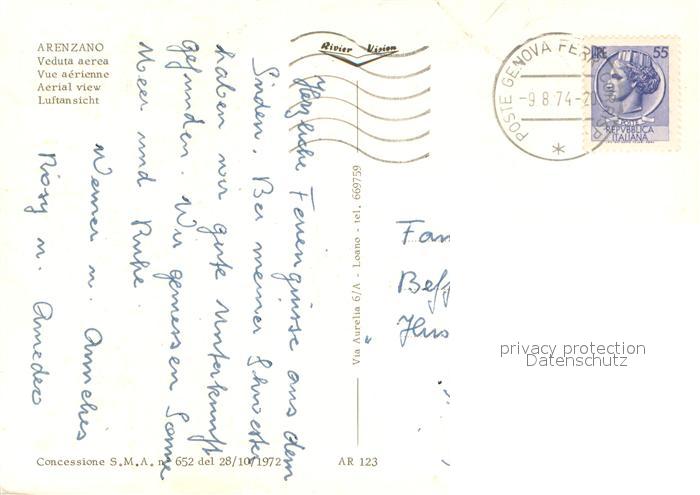 ARENZANO
Veduta aerea
Vue aérienne
Aerial view
Luftansicht
Rivier Vision
Herzliche Feriengrüsse aus dem
Süden. Bei meiner Schwester
haben wir gute Unterkunft
gefunden. Wir geniessen Sonne
Meer und Ruhe.
Werner u. Annelies
Rösy u. Amedeo
Via Aurelia 6/A - Loano - tel. 669759
POSTE GENOVA FERR
-9.8.74-20
55
POSTE
REPVBBLICA
ITALIANA
Fam
privacy protection
Datenschutz
Concessione S.M.A. n. 652 del 28/10/1972
AR 123